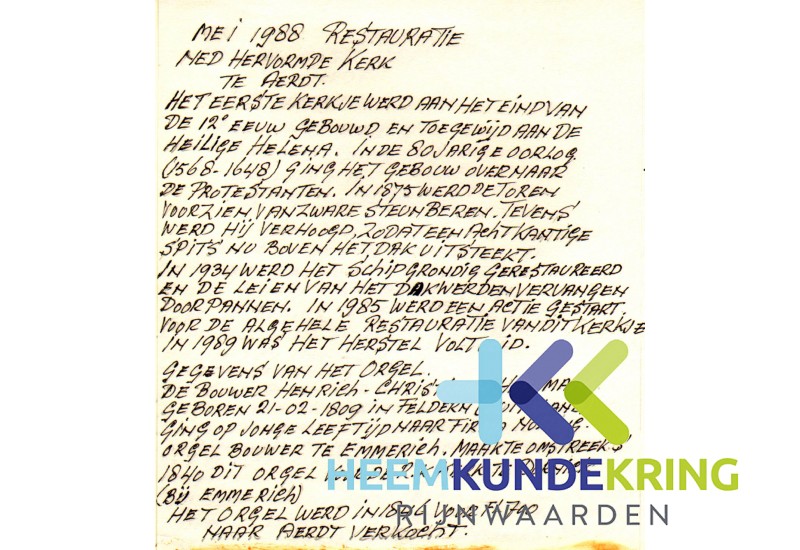 MEI 1988 RESTAURATIE
NED HERVORMDE KERK
TE AERDT.
HET EERSTE KERKJE WERD AAN HET EIND VAN
DE 12e EEUW GEBOUWD EN TOEGEWIJD AAN DE
HEILIGE HELENA. IN DE 80 JARIGE OORLOG
(1568-1648) GING HET GEBOUW OVER NAAR
DE PROTESTANTEN. IN 1875 WERD DE TOREN
VOORZIEN VAN ZWARE STEUNBEREN. TEVENS
WERD HIJ VERHOOGD, ZODAT EEN ACHTKANTIGE
SPITS NU BOVEN HET DAK UITSTEEKT.
IN 1934 WERD HET SCHIP GRONDIG GERESTAUREERD
EN DE LEIEN VAN HET DAK WERDEN VERVANGEN
DOOR PANNEN. IN 1985 WERD EEN ACTIE GESTART
VOOR DE ALGEHELE RESTAURATIE VAN DIT KERKJE
IN 1989 WAS HET HERSTEL VOLTOOID.
GEGEVENS VAN HET ORGEL.
DE BOUWER HENRICH-
GEBOREN 21-02-1809 IN
GING OP JONGE LEEFTIJD NAAR FIRMA
ORGEL BOUWER TE EMMERICH. MAAKTE OMSTREEKS
1840 DIT ORGEL
(BIJ EMMERICH)
HET ORGEL WERD IN VOOR
NAAR AERDT VERKOCHT.
HEEMKUNDEKRING
RIJNWAARDEN